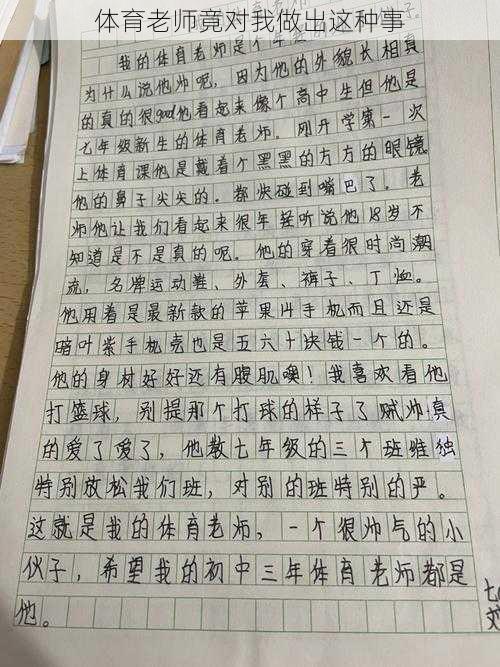 体育老师竟对我做出这种事
我的体育老师是个年
为什么说他帅呢，因为他的外貌长相真
的真的很good他看起来像个高中生但他是
七年级新生的体育老师。刚开学第一次
上体育课他是戴着个黑黑的方方的眼镜
他的鼻子尖尖的。都快碰到嘴巴了。老
师他让我们看起来很年轻听说他18岁不
知道是不是真的呢。他的穿着很时尚潮
流，名牌运动鞋、外套、裤子、丁恤。
他用着是最新款的苹果14手机而且还是
暗叶紫手机壳也是五六十块钱一个的。
他的身材好好还有腹肌噢！我喜欢看他
打篮球，别提那个打球的样子了贼帅真
的爱了爱了，他教七年级的三个班维独
特别放松我们班，对别的班特别的严。
这就是我的体育老师，一个很帅气的小
伙子，希望我的初中三年体育老师都是
他。